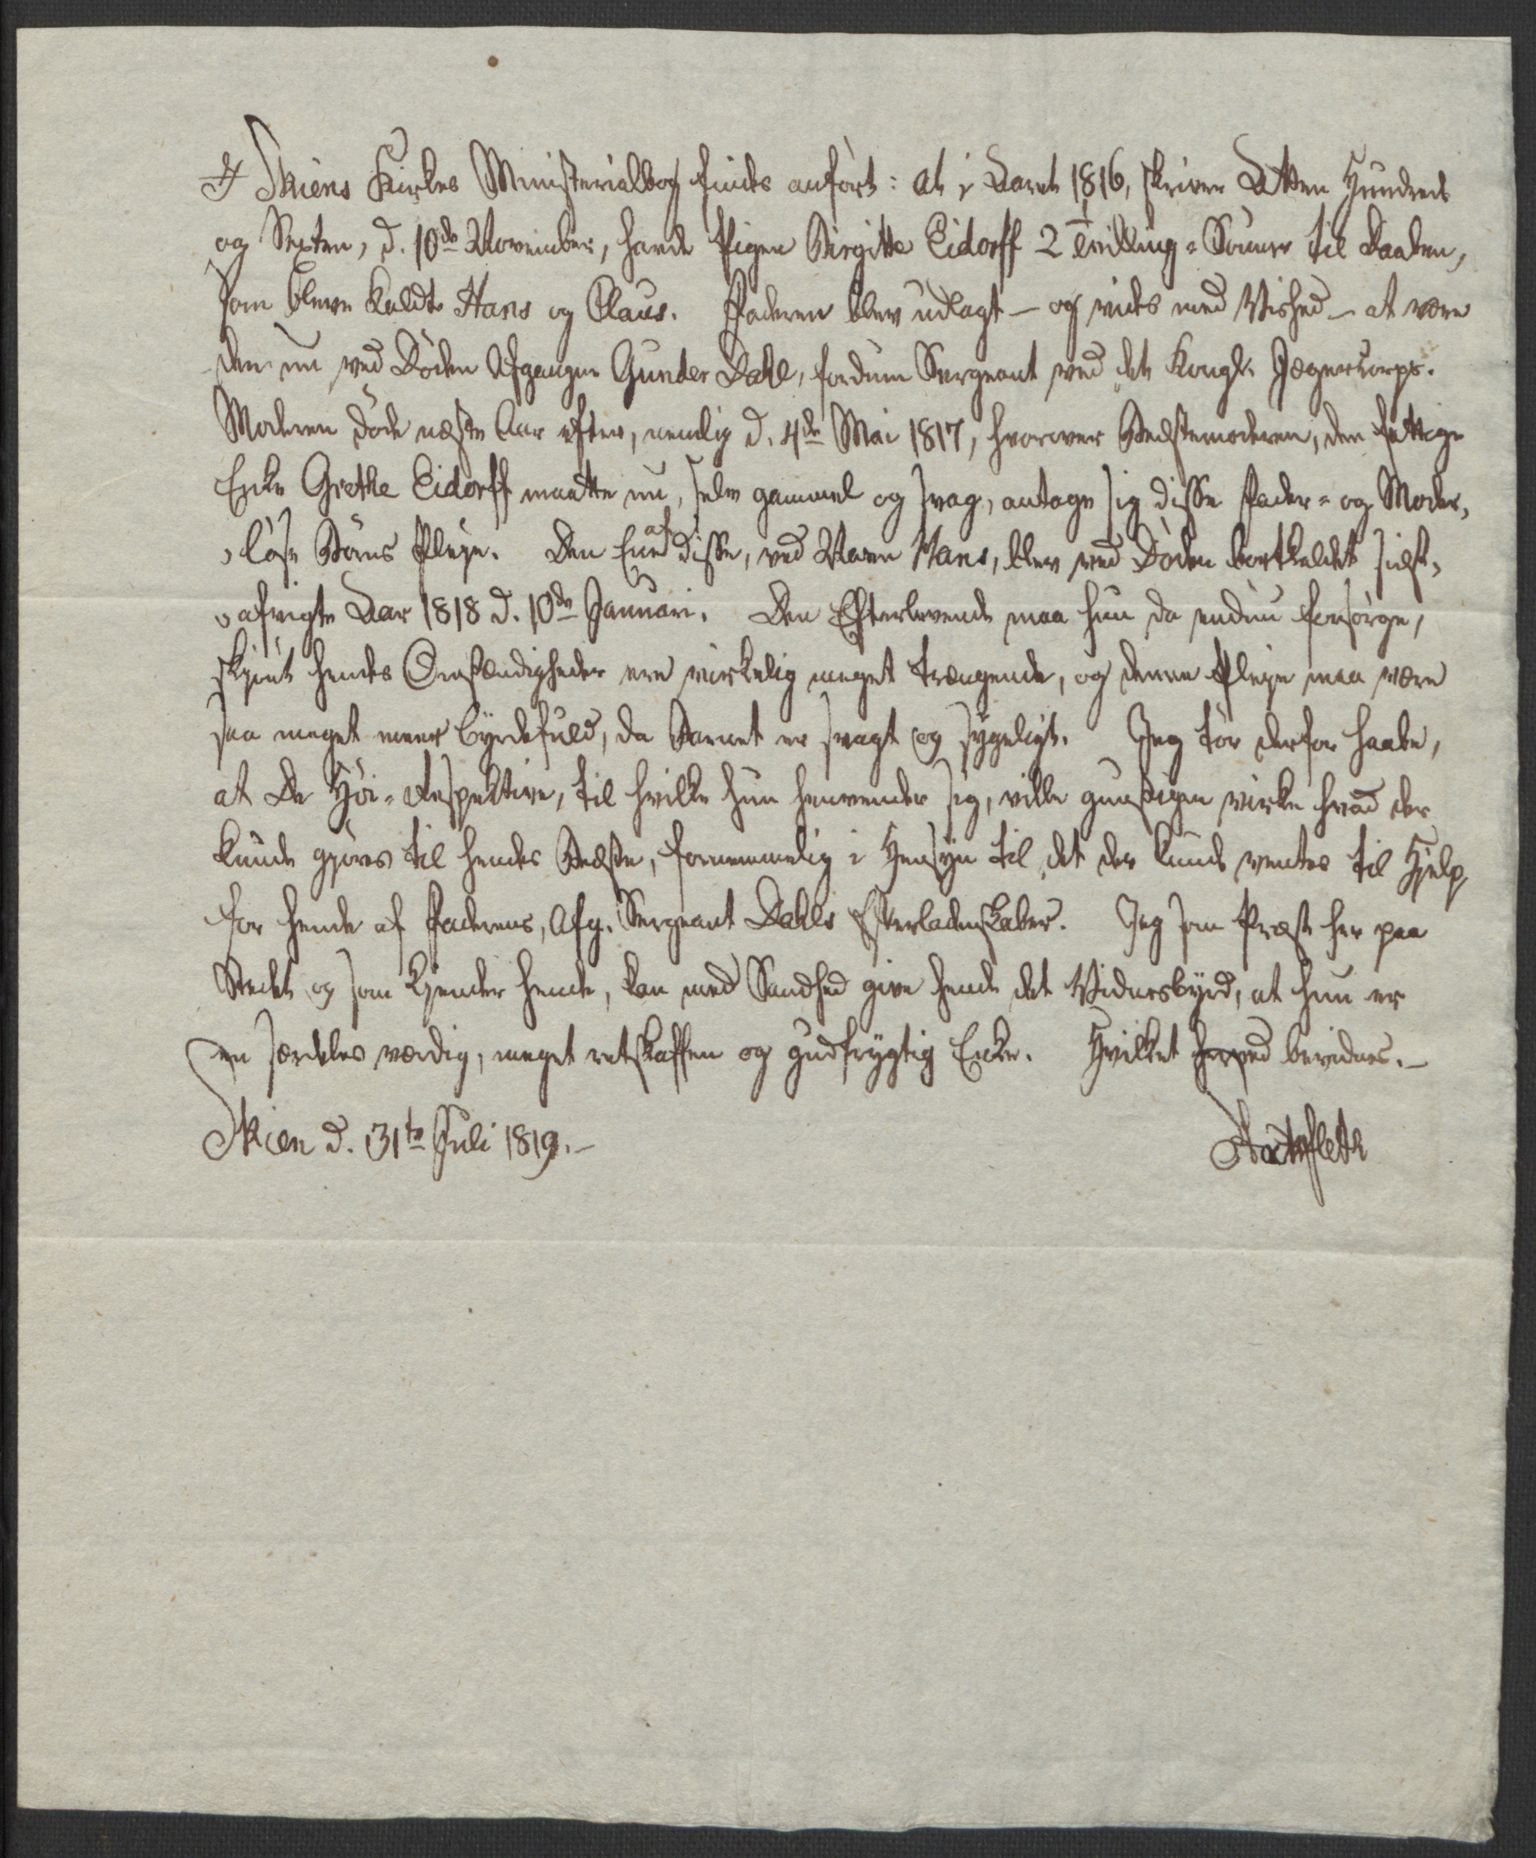 I Skiens Kirkes Ministerialbog findes anført: at i Aaret 1816, skriver Atten Hundrede
og Sexten, d. 10de November, havde Pigen Birgitte Eidorff 2 Tvilling-Sønner til Daaben,
som bleve kaldte Hans og Claus. Faderen blev udlagt – og vides med Vished – at være
den nu ved Døden Afgangne Gunder Dahl, fordum Sergeant ved det Kongl. Jægercorps.
Moderen døde næste Aar efter, nemlig d. 4de Mai 1817, hvorover Bedstemoderen, den fattige
Enke Grethe Eidorff maatte nu, selv gammel og svag, antage sig disse Fader- og Moder-
løse Børns Pleje. Den Ene af disse, ved Navn Hans, blev ved Døden bortkaldet sidst-
afvigte Aar 1818 d. 10de Januari. Den Efterlevende maa hun da endnu forsørge,
skjønt hendes Omstændigheder ere virkelig meget trængende, og denne Pleje maa være
saa meget meer byrdefuld, da Barnet er svagt og sygeligt. Jeg tør derfor haabe,
at De Høi-Respektive, til hvilke hun henvender sig, ville gunstigen virke hvad der
kunde gjøres til hendes Bedste, fornemmelig i Hensyn til det der kunde ventes til Hjelp
for hende af Faderens, Afg. Sergeant Dahls Efterladenskaber. Jeg som Præst her paa
Stedet og som kjender hende, kan med Sandhed give hende det Vidnesbyrd, at hun er
en særdeles værdig, meget retskaffen og gudfrygtig Enke. Hvilket herved bevidnes. –
Skien d. 31te Juli 1819. –